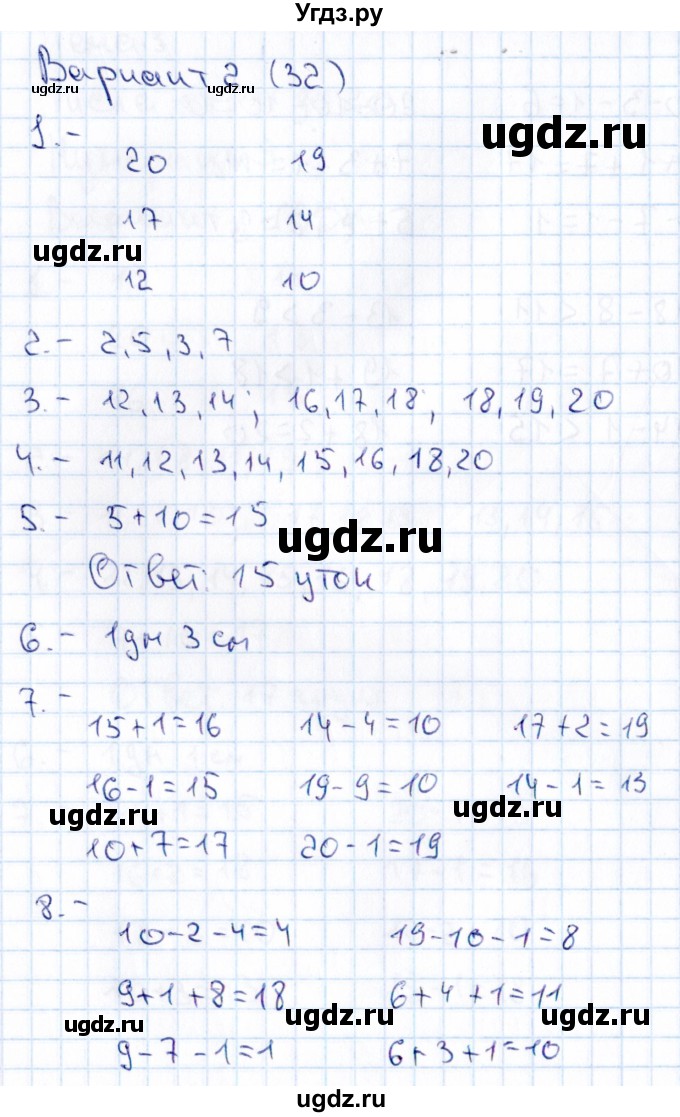 Угдз.ру
Вариант 2 (32)
ugdz.ru ugdz.ru
1.-
ugdz.ru
20 19
17 14
ugdz.ru
12 10
2.- 2,5,3,7
3.- 12,13,14; 16,17,18; 18,19,20
4.- 11,12,13,14,15,16,18,20
5.- 5+10=15
ugdz.ru
Ответ: 15 уток
6.- 1дм 3 см
7.-
15+1=16 14-4=10 17+2=19
16-1=15 19-9=10 14-1=13
ugdz.ru ugdz.ru
10+7=17 20-1=19
8.-
10-2-4=4 19-10-1=8
9+1+8=18 6+4+1=11
ugdz.ru ugdz.ru ugdz.ru
9-7-1=1 6+3+1=10
ugdz.ru